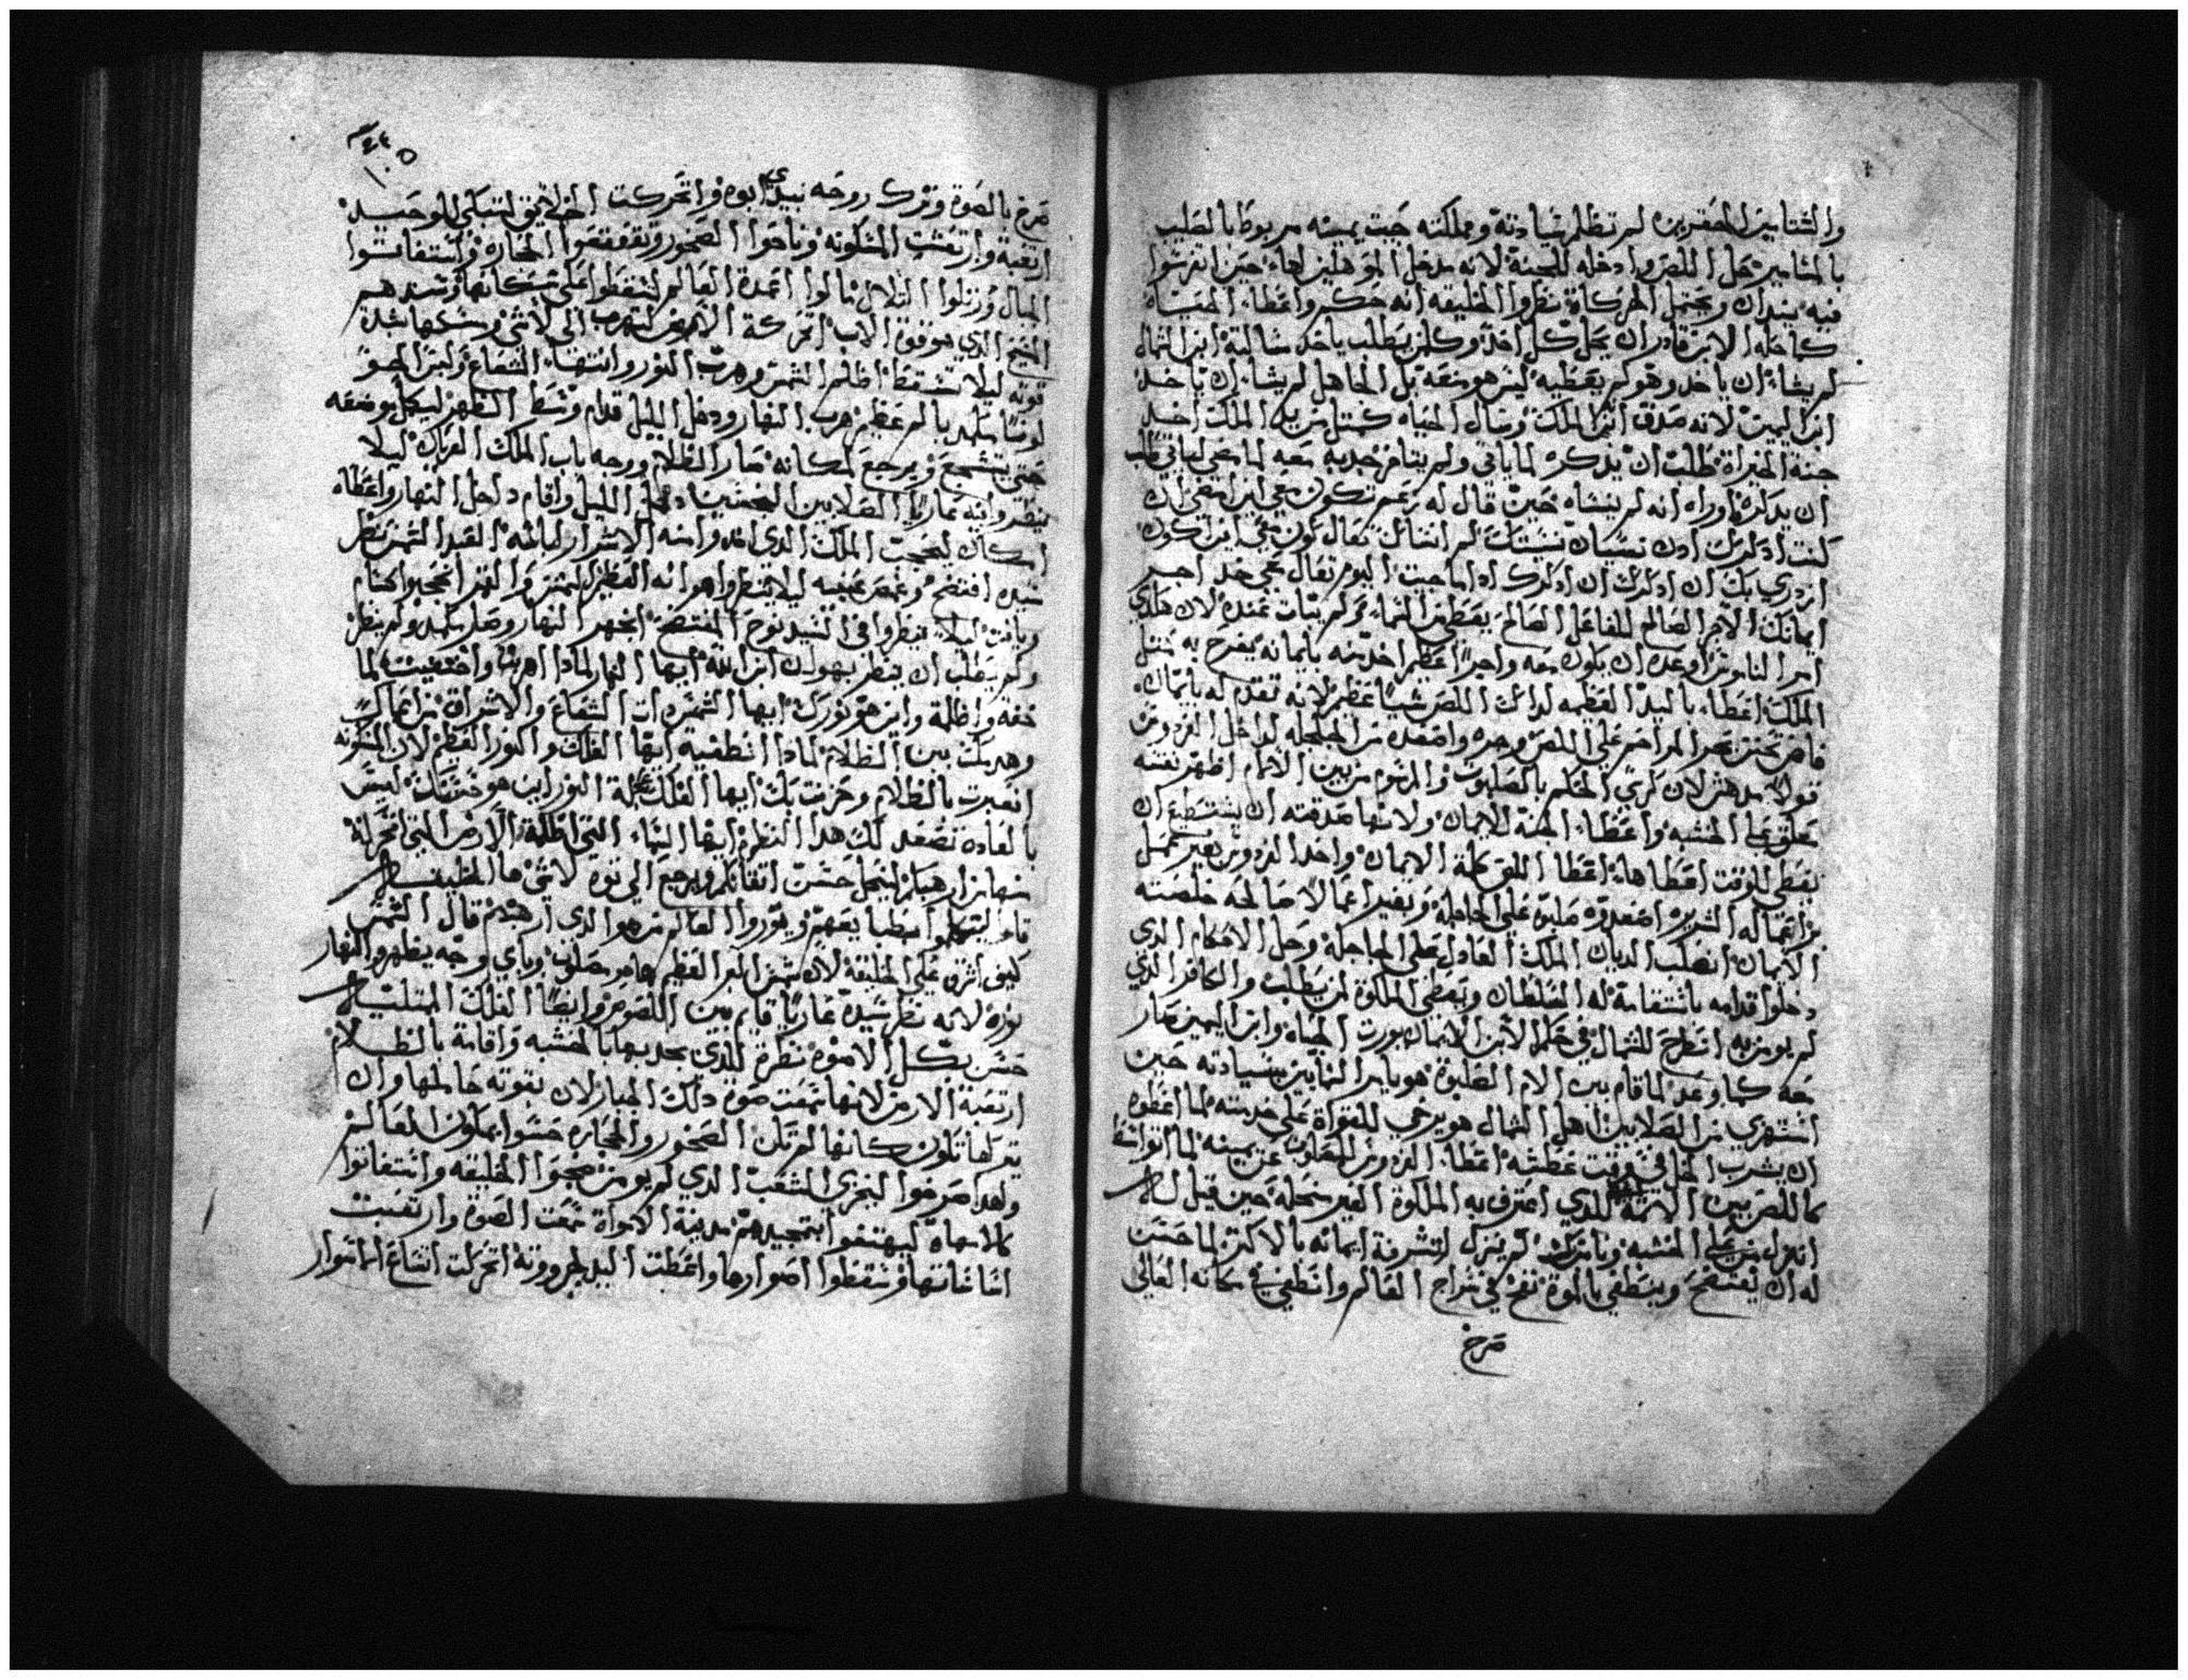 والشتامين المحقرين لم تظلم سيادته ومملكته جبت يمينه مربوط بالصليب
بالمسامير حل اللص وادخله للجنة لانه مدخل الموهلين لها حين انفرشوا
فيه يندان ويحتمل الحركات نظروا الخليقه انه حكيم واعطا الحياه
كما حله الابن قادر ان يحل كل احد وكلمن يطلب ياخذ سالبة ابن الشمال
لم يشاء ان ياخد وهو لم يعطيه ليس هو منعه بل الجاهل لم يشاء ان ياخد
ابن اليمين لانه صدق ابن الملك وسال الحياه كمتل من يد الملك اخد
جنة الخيرات طلب ان يدكره لما ياتي ولم يتاخر جدبه معه لما مضى لياتي طلب
ان يدكره اوراه انه لم ينساه حين قال له نعم تكون معي اين امضى ان
كنت ادكرك ادن نسيان نسيتك لم انساك تعال كون معي اين اكون
ازدري بك ان ادكرك ان ادكرك ادا ما جيت اليوم تعال معي خد اجر
ايمانك الاجر الصالح للفاعل الصالح يعطى من المساء ولم يبات عنده لان هكدي
امر الناموس اوعده ان يكون معه واجرا عظيم اخد منه بايمانه يفرح به متل
الملك اعطاء باليد العظيمه لدالك اللص شيا عظيم لانه تقدم له بايمان
فاض تحنن بحر المراحم على اللص وحده واصعده من الجلجله لداخل الفردوس
قولا مدهش لان كرسي الحكم بالصلبوت والرشوم من بين الالام اظهر نفسه
معلق على الخشبه واعطاء الجنة للايمان ولانها صدقته ان يستطيع ان
يعطي للوقت اعطاها اعطا اللص كلمة الايمان واخد الفردوس بغير عمل
من اعماله الشريره اصعدوه صليبه على الجلجله وبغير اعمالا صالحه خلصته
الايمان انصلب الديان الملك العادل على الجلجله وحل الاحكام الدي
دخلوا قدامه باستقامة له السلطان ويعطي الملكوة لمن يطلب والكافر الدي
لم يومن به انطرح للشمال في حكم الابن الايمان يورت الحياه وابن اليمين صار
معه كما وعد لما قام بين الام الصلبوة هو يامر السمايين بسيادته حين
استهزي من الصلابين اهل الشمال هو يرخي للقواة على خدمته لما اعطوه
ان يشرب الخل في وقت عطشه اعطاء الفردوس للمصلوب عن يمينه لما اتواسط
كاللص بين الاتمة للدي اعترف به الملكوة الغير منحله حين قيل له
انزل من على الخشبه ونامن بك لم ينزل لتشرفة ايمانه بالاكتر لما حسن
له ان يفتضح وينطفي بالموة نفخ في سراج العالم وانطفي في مكانه العالي
صرخ
١٠٥
صرخ بالصوة وترك روحه بيدي ابوه واتحركت الخلايق لتبكي للوحيد
ارتعبة وارتعشت المسكونه وناحوا الصخور وتقعقعوا الحجاره واستغاتوا
الجبال وزتلوا التلال مالوا اعمدة العالم ليسقطوا على سكانها وسندهم
المسيح الدي هو قوة الاب اتحركة الارض لتهرب الى لاشي ومسكها شدة
قوته ليلا تسقط اظلم الشمس وهرب النور وانتهاء الشعاع ولبس الجو
لونا متكمد يالم عظيم هرب النهار ودخل الليل قدام وسط الظهر ليكمل موضعه
حتى يتشجع ويرجع لمكانه صار الظلام ورحه باب الملك العريان ليلا
ينظروا فيه عاريا الصلابين النجسين دخل الليل واقام داخل النهار واعطاه
امكان ليحجب الملك الدي اخدوا منه الاشرار لباسه العبد الشمس نظر
سيده افتضح وغمض عينيه ليلا ينظروا هوانه العظيم الشمس والقمر انحجبوا كسام
ويافت ليلا ينظروا في السيد نوح المفتضح انخهر النهار وصار متكمد ولم ينظر
ولم يطلب ان ينظر بهوان ابن الله ايها النهار لمادا اهربت واختفيت لما
خفة واظلمة واين هو نورك ايها الشمس دات الشعاع والاشراق من اعماك
وهدبك بين الظلام لمادا انطفية ايها الفلك والنور العظيم لان المسكونه
اتعبرت بالظلام وحزنت بك ايها الفلك عجلة النور اين هو حسنك ليس
بالعاده تصعد لك هدا النظر ايها السماء التي اظلمة والارض التي اتحركة
منها من ارهبكم ليحل حسن اتقانكم ويرجع الى توة لاشي ها الخليقه
قامة ليتكلموا انطبا يعهم ويوروا العالم من هو الدي ارهبهم قال الشمس
كيف اشرق على الخليقة لان شمس البر العظيم هامو مصلوب وباي وجه يظهر النهار
نوره لانه نظر سيده عاريا قايم بين اللصوص وايضا الفلك الممتلي
حسن بكل الاموه نظرة للدي يجدبها بالخشبه واقامة بالظلام
ارتعبة الارض لانها سمعت صوة دلك الجبار لان بقوته حاملها وان
تعرلها تكون كانها لم تكن الصخور والحجاره حسوا يملون العالم
ولهدا صرخوا ليخزي الشعب الدي لم يومن ضجوا الخليقه واستغاتوا
كالامهاة ليهتفوا بتمجيدهم مدينة الامواة سمعت الصوة وارتعبت
اساساتها وسقطوا اصوارها واعطت اليد لجروتة اتحركت اتشاع اما اسوار